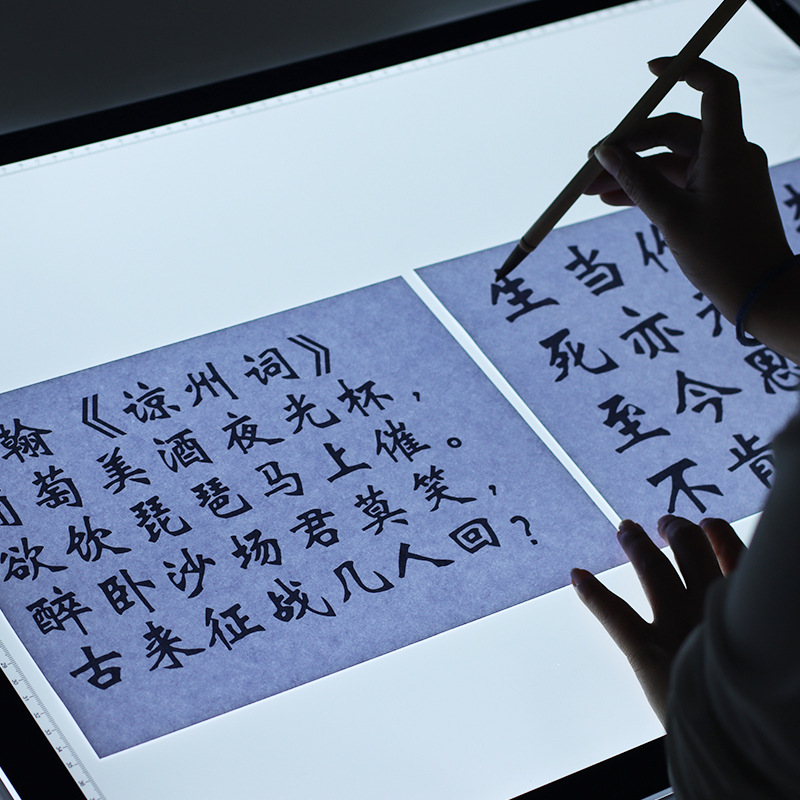 翰《凉州词》
萄美酒夜光杯,
欲饮琵琶马上催。
醉卧沙场君莫笑,
古来征战几人回?
生当作
死亦
至今思
不肯